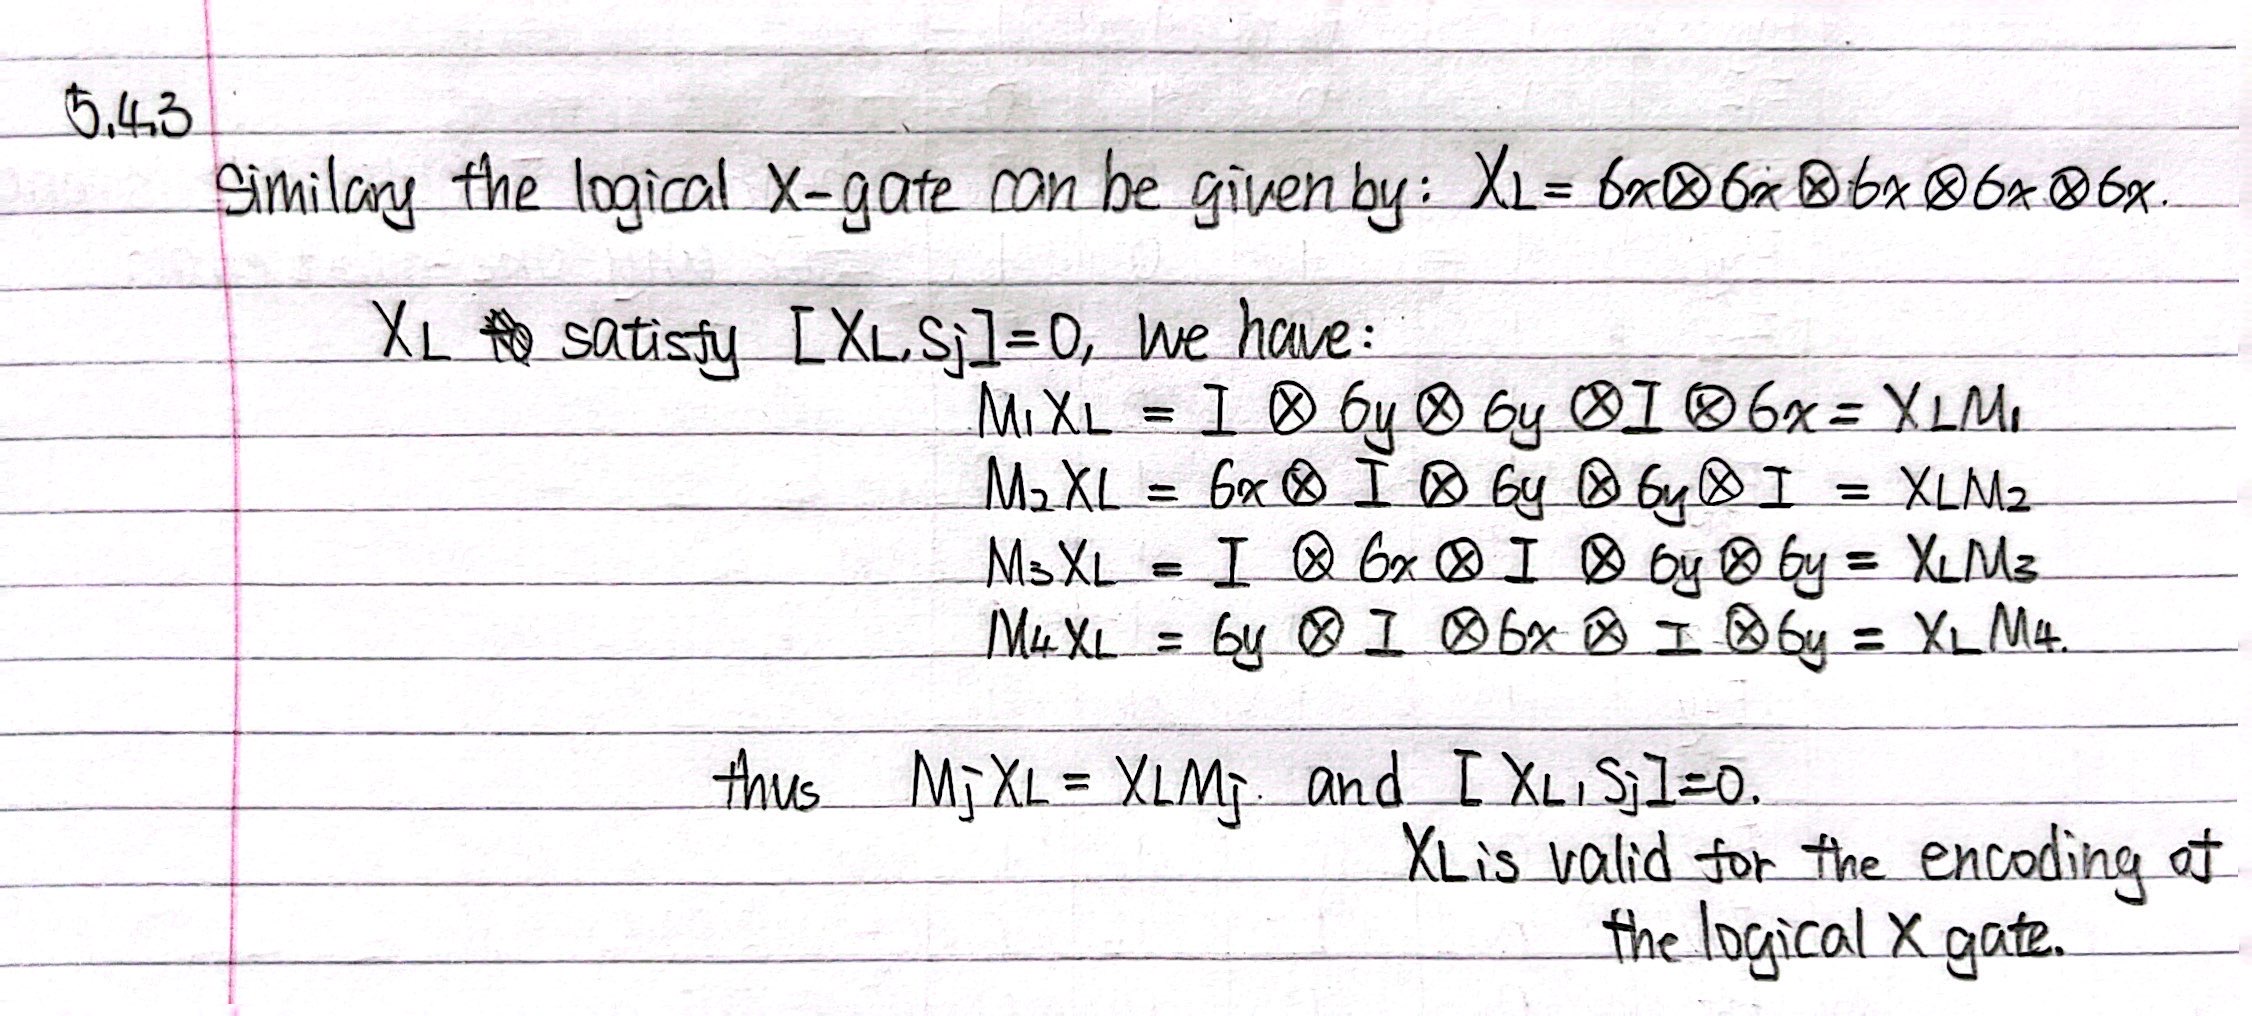 5.4.3
Similary the logical X-gate can be given by: XL = 6x⊗6x⊗6x⊗6x⊗6x.
XL satisfy [XL, Sj]=0, we have:
M1XL = I ⊗ 6y ⊗ 6y ⊗ I ⊗ 6x = XLM1
M2XL = 6x ⊗ I ⊗ 6y ⊗ 6y ⊗ I = XLM2
M3XL = I ⊗ 6x ⊗ I ⊗ 6y ⊗ 6y = XLM3
M4XL = 6y ⊗ I ⊗ 6x ⊗ I ⊗ 6y = XLM4.
thus MjXL = XLMj. and [XL, Sj]=0.
XL is valid for the encoding of
the logical X gate.